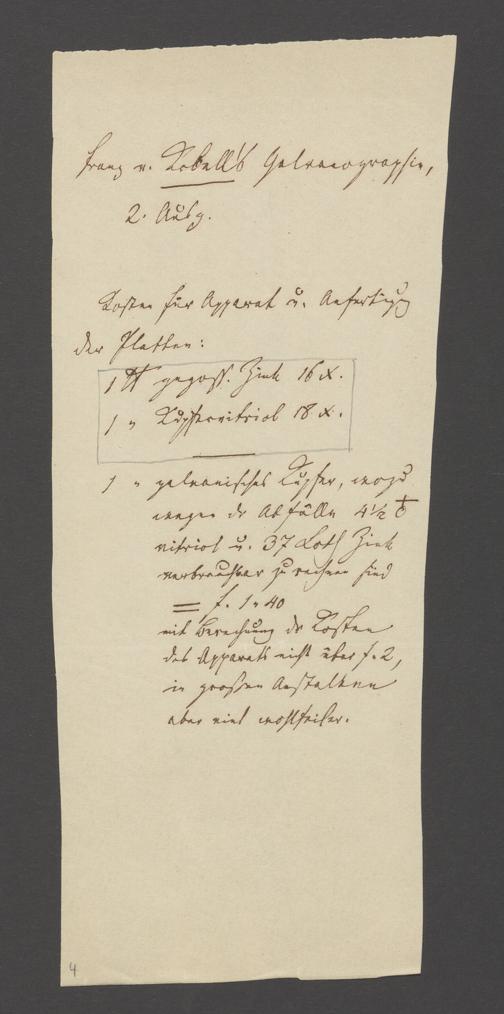 Franz v. Kobell's Galvanographie,
2. Ausg.
Kosten für Apparat u. Anfertigung
der Platten:
1 ℔ gegoss. Zink 16 x.
1 " Kupfervitriol 18 x.
1 " galvanisches Kupfer, wozu
wegen der Abfälle 4 1/2 ℔
vitriol u. 37 Loth Zink
verbrauchbar zu rechnen sind
= f. 1 " 40
mit Berechnung der Kosten
des Apparats nicht über f. 2,
in grossen Anstalten
aber viel wohlfeiler.
4